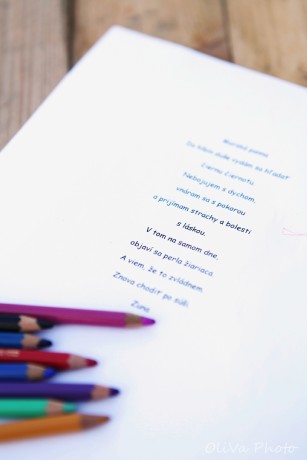 Morská panna
Do hĺbin duše vydám sa hľadať
čiernu čiernotu.
Nebojujem s dychom,
vnáram sa s pokorou
a prijímam strachy a bolesti
s láskou.
V tom na samom dne,
objaví sa perla žiariaca.
A viem, že to zvládnem.
Znova chodiť po súši.
Zana
Oliva Photo